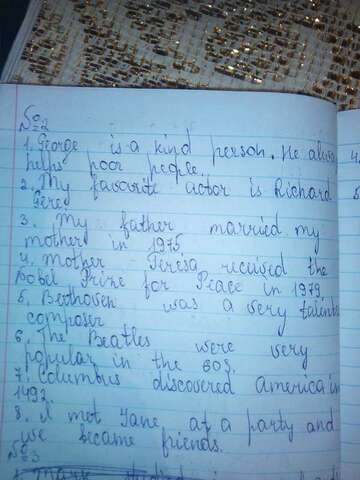 №2
1. George is a kind person. He always
helps poor people.
2. My favorite actor is Richard
Gere
3. My father married my
mother in 1975
4. Mother Teresa received the
Nobel Prize for Peace in 1979.
5. Bethoven was a very talented
composer
6. The Beatles were very
popular in the 60s.
7. Columbus discovered America in
1492.
8. I met Jane at a party and
we became friends.
№3